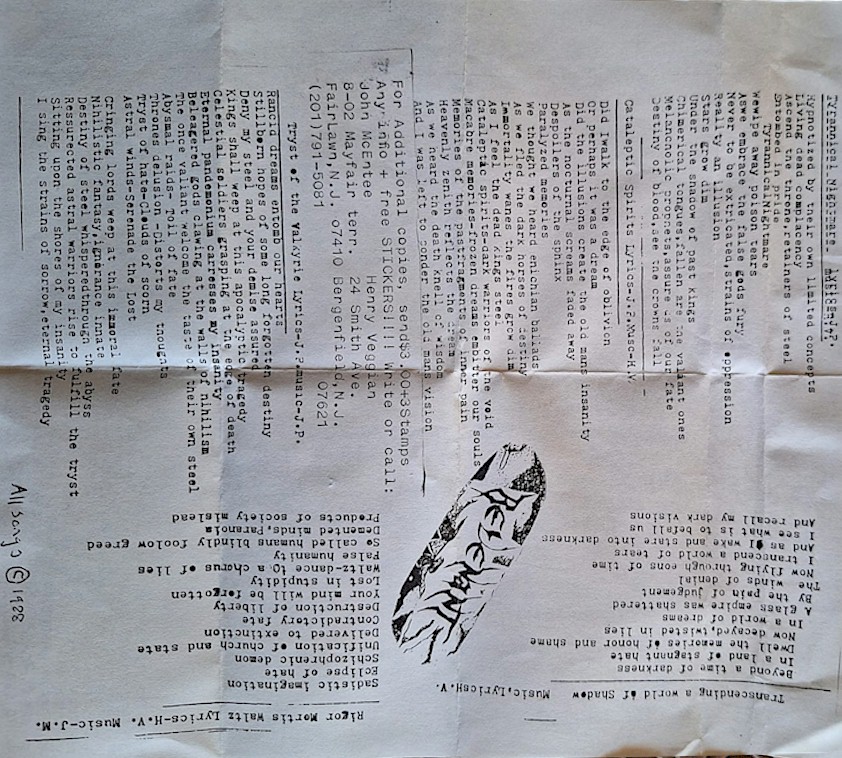 Tyrannical Nightmare.
Hypnotized by their own limited concepts
Living dead complacency
Ascend the throne, retainers of steel
Entombed in pride
Tyrannical Nightmare
Wewipe away poison tears
Aswe betrothe the false gods fury
Never to be extricated, strains of oppression
Reality an illusion
Stars grow dim
Under the shadow of past kings
Chimerical tongues, fallen are the valiant ones
Melancholic prophets, assure us of our fate
Destiny of blood, see the crowns fall
Cataleptic Spirits Lyrics-J.P. Musc-H.V.
Did I walk to the edge of oblivion
Or perhaps it was a dream
Did the illusions create the old mans insanity
As the nocturnal screams faded away
Despoilers of the sphinx
Paralyzed memories
We thought we heard enichian ballads
As we walked the dark horses of destiny
Immortality wanes the fires grow dim
As I feel the dead kings steel
Cataleptic Spirits-dark warriors of the void
Macabre memories-frozen dreams embitter our souls
Memories of the past-enigmas of inner pain
Heavenly zenith reflects the dream
As we neared the death knell of wisdom
And I was left to ponder the old mans vision
For Additional copies, send$3.00+3Stamps
Any info + free STICKERS!!!! write or call:
John McEntee Henry Veggian
8-02 Mayfair terr. 24 Smith Ave.
FairLawn,N.J. 07410 Bergenfield,N.J.
(201)791-5081 07621
Tryst of the Valkyrie Lyrics-J.P.music-J.P.
Rancid dreams entomb our hearts
Stillborn hopes of some long forgotten destiny
Deny my steel and your demise assured
Kings shall weep at this apocalyptic tragedy
Celestial soldiers grasping at the edge of death
Eternal pandemonium carresses my insanity
Beleagered gods clawing at the walls of nihilism
The once valiant welcome the taste of their own steel
Abysmal raids- Toil of fate
Thronos delusion -Distorts my thoughts
Tryst of hate-Clouds of scorn
Astral winds-Serenade the Lost
Cringing lords weep at this immoral fate
Nihilistic fantasy, ignorance innate
Destiny of strife, stopped through the abyss
Ressurected astral warriors rise to fulfill the tryst
Sitting upon the shores of my insanity
I sing the strains of sorrow, eternal tragedy
Transcending a world of Shadow Music, LyricsH.V.
Beyond a time of darkness
In a land of stagnant hate
Dwell the memories of honor and shame
Now decayed, twisted in lies
In a world of dreams
A glass empire was shattered
By the pain of judgement
The winds of denial
Now flying through eons of time
I transcend a world of tears
And as I wake and stare into darkness
I see what is to befall us
And recall my dark visions
REVENANT
Rigor Mortis Waltz Lyrics-H.V. Music-J.M.
Sadistic imagination
Eclipse of hate
Schizophrenic demon
Unification of church and state
Delivered to extinction
Contradictory fate
Destruction of liberty
Your mind will be forgotten
Lost in stupidity
Waltz-dance to a chorus of lies
False humanity
So called humans blindly foolow greed
Demented minds, Paranoia
Products of society mislead
All songs © 1988